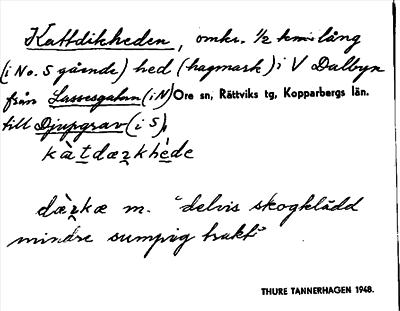 Kattdikheden, omkr. ½ km lång
(i No. S gående) hed (hagmark) i V Dalbyn
från Lassesgatan (i N) Ore sn, Rättviks tg, Kopparbergs län.
till Djupgrav (i S).
kàtdæzkhède
dæ̀zkæ m. "delvis skogklädd
mindre sumpig trakt"
THURE TANNERHAGEN 1948.